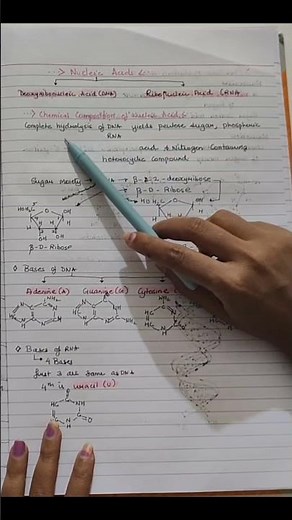 Nucleic Acids
Deoxyribonucleic Acid (DNA) Ribonucleic Acid (RNA)
Chemical Composition of Nucleic Acids
Complete hydrolysis of DNA yields pentose sugar, phosphoric
RNA
acid & Nitrogen Containing
heterocyclic compound
Sugar moiety → β-D-2-deoxyribose
β-D-Ribose
HOH₂C O OH
HOH₂C O OH
OH OH
β-D-Ribose
Bases of DNA
Adenine (A) Guanine (G) Cytosine (C)
Bases of RNA
→ 4 Bases
first 3 are same as DNA
4th is uracil (U)